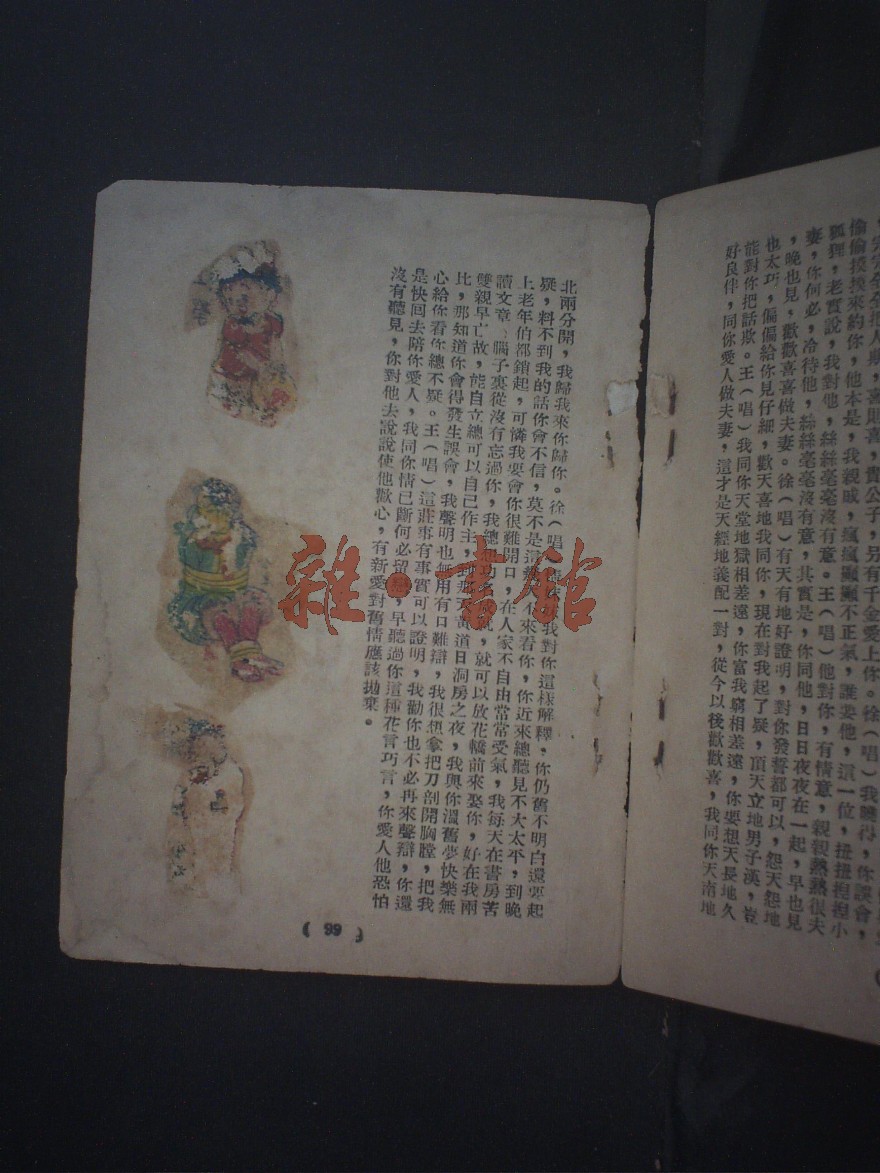 完完全全把人欺，喜則喜，貴公子，另有千金愛上你。徐（唱）我曉得，你誤會，
偷偷摸摸來約你，他本是，我親戚，瘋瘋顛顛不正氣，誰要他，這一位，扭扭捏捏小
狐狸，老實說，我對他，絲絲毫毫沒有意。王（唱）他對你，有情意，親親熱熱很夫
妻，你何必，冷待他，絲絲毫毫沒有意，其實是，你同他，日日夜夜在一起，早也見
，晚也見，歡歡喜喜做夫妻。徐（唱）有天有地好證明，對你發誓都可以，怨天怨地
也太巧，偏偏給你見仔細，歡天喜地我同你，現在對我起了疑，頂天立地男子漢，豈
能對你把話欺。王（唱）我同你天堂地獄相差遠，你富我窮相差遠，你要想天長地久
好良伴，同你愛人做夫妻，這才是天經地義配一對，從今以後歡歡喜，我同你天南地
北兩分開，我歸我來你歸你。徐（唱）我對你這樣解釋，你仍舊不明白還要起
疑，料不到我的話你會不信，莫不是這不來看你，你近來總聽見不大太平，到晚
上老年伯都鎖起，可憐我要會你很難開口，在人家不自由常常受氣，我每天在書房苦
讀文章，腦子裏從沒有忘過你，我總想功名成就，就可以放花轎前來娶你，好在我兩
雙親早亡故，能自立總可以自己作主，到那天黃道日洞房之夜，我與你溫舊夢快樂無
比，那知道你會得發生誤會，我聲明也無用有口難辯，我很想拿把刀剖開胸膛，把我
心給你看你總不疑。王（唱）這莊事有事實可以證明，我勸你也不必再來聲辯，你還
是快回去陪你愛人，我同你情已斷何必留戀，早聽過你這種花言巧言，你愛人他恐怕
沒有聽見，你對他去說說使他歡心，有新愛對舊情應該拋棄。
( 99 )
雜·書館